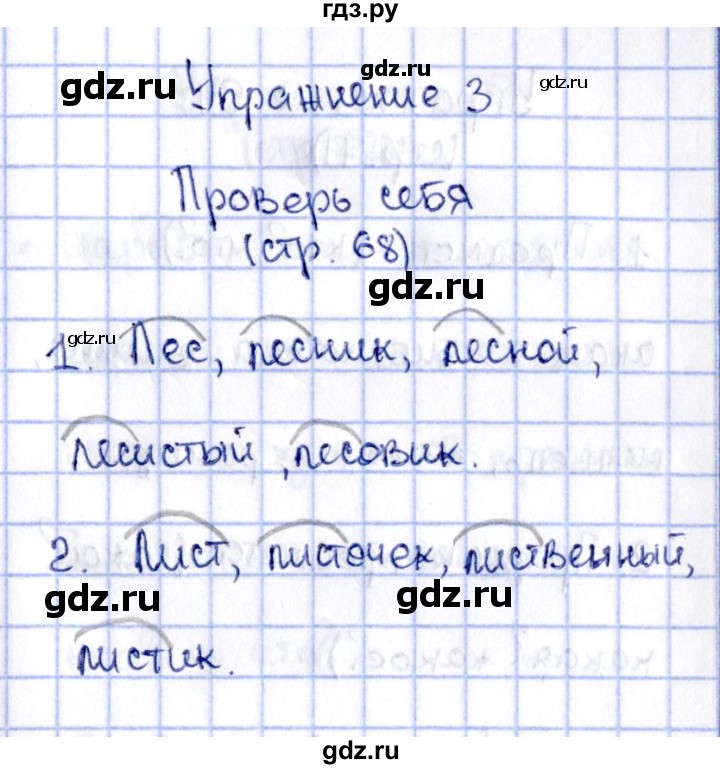 гдз.ру
gdz.ru gdz.ru gdz.ru
Упражнение 3
Проверь себя
(стр. 68)
gdz.ru
gdz.ru
1. Лес, лесник, лесной,
лесистый, лесовик.
2. Лист, листочек, лиственный,
gdz.ru gdz.ru
листик.
gdz.ru